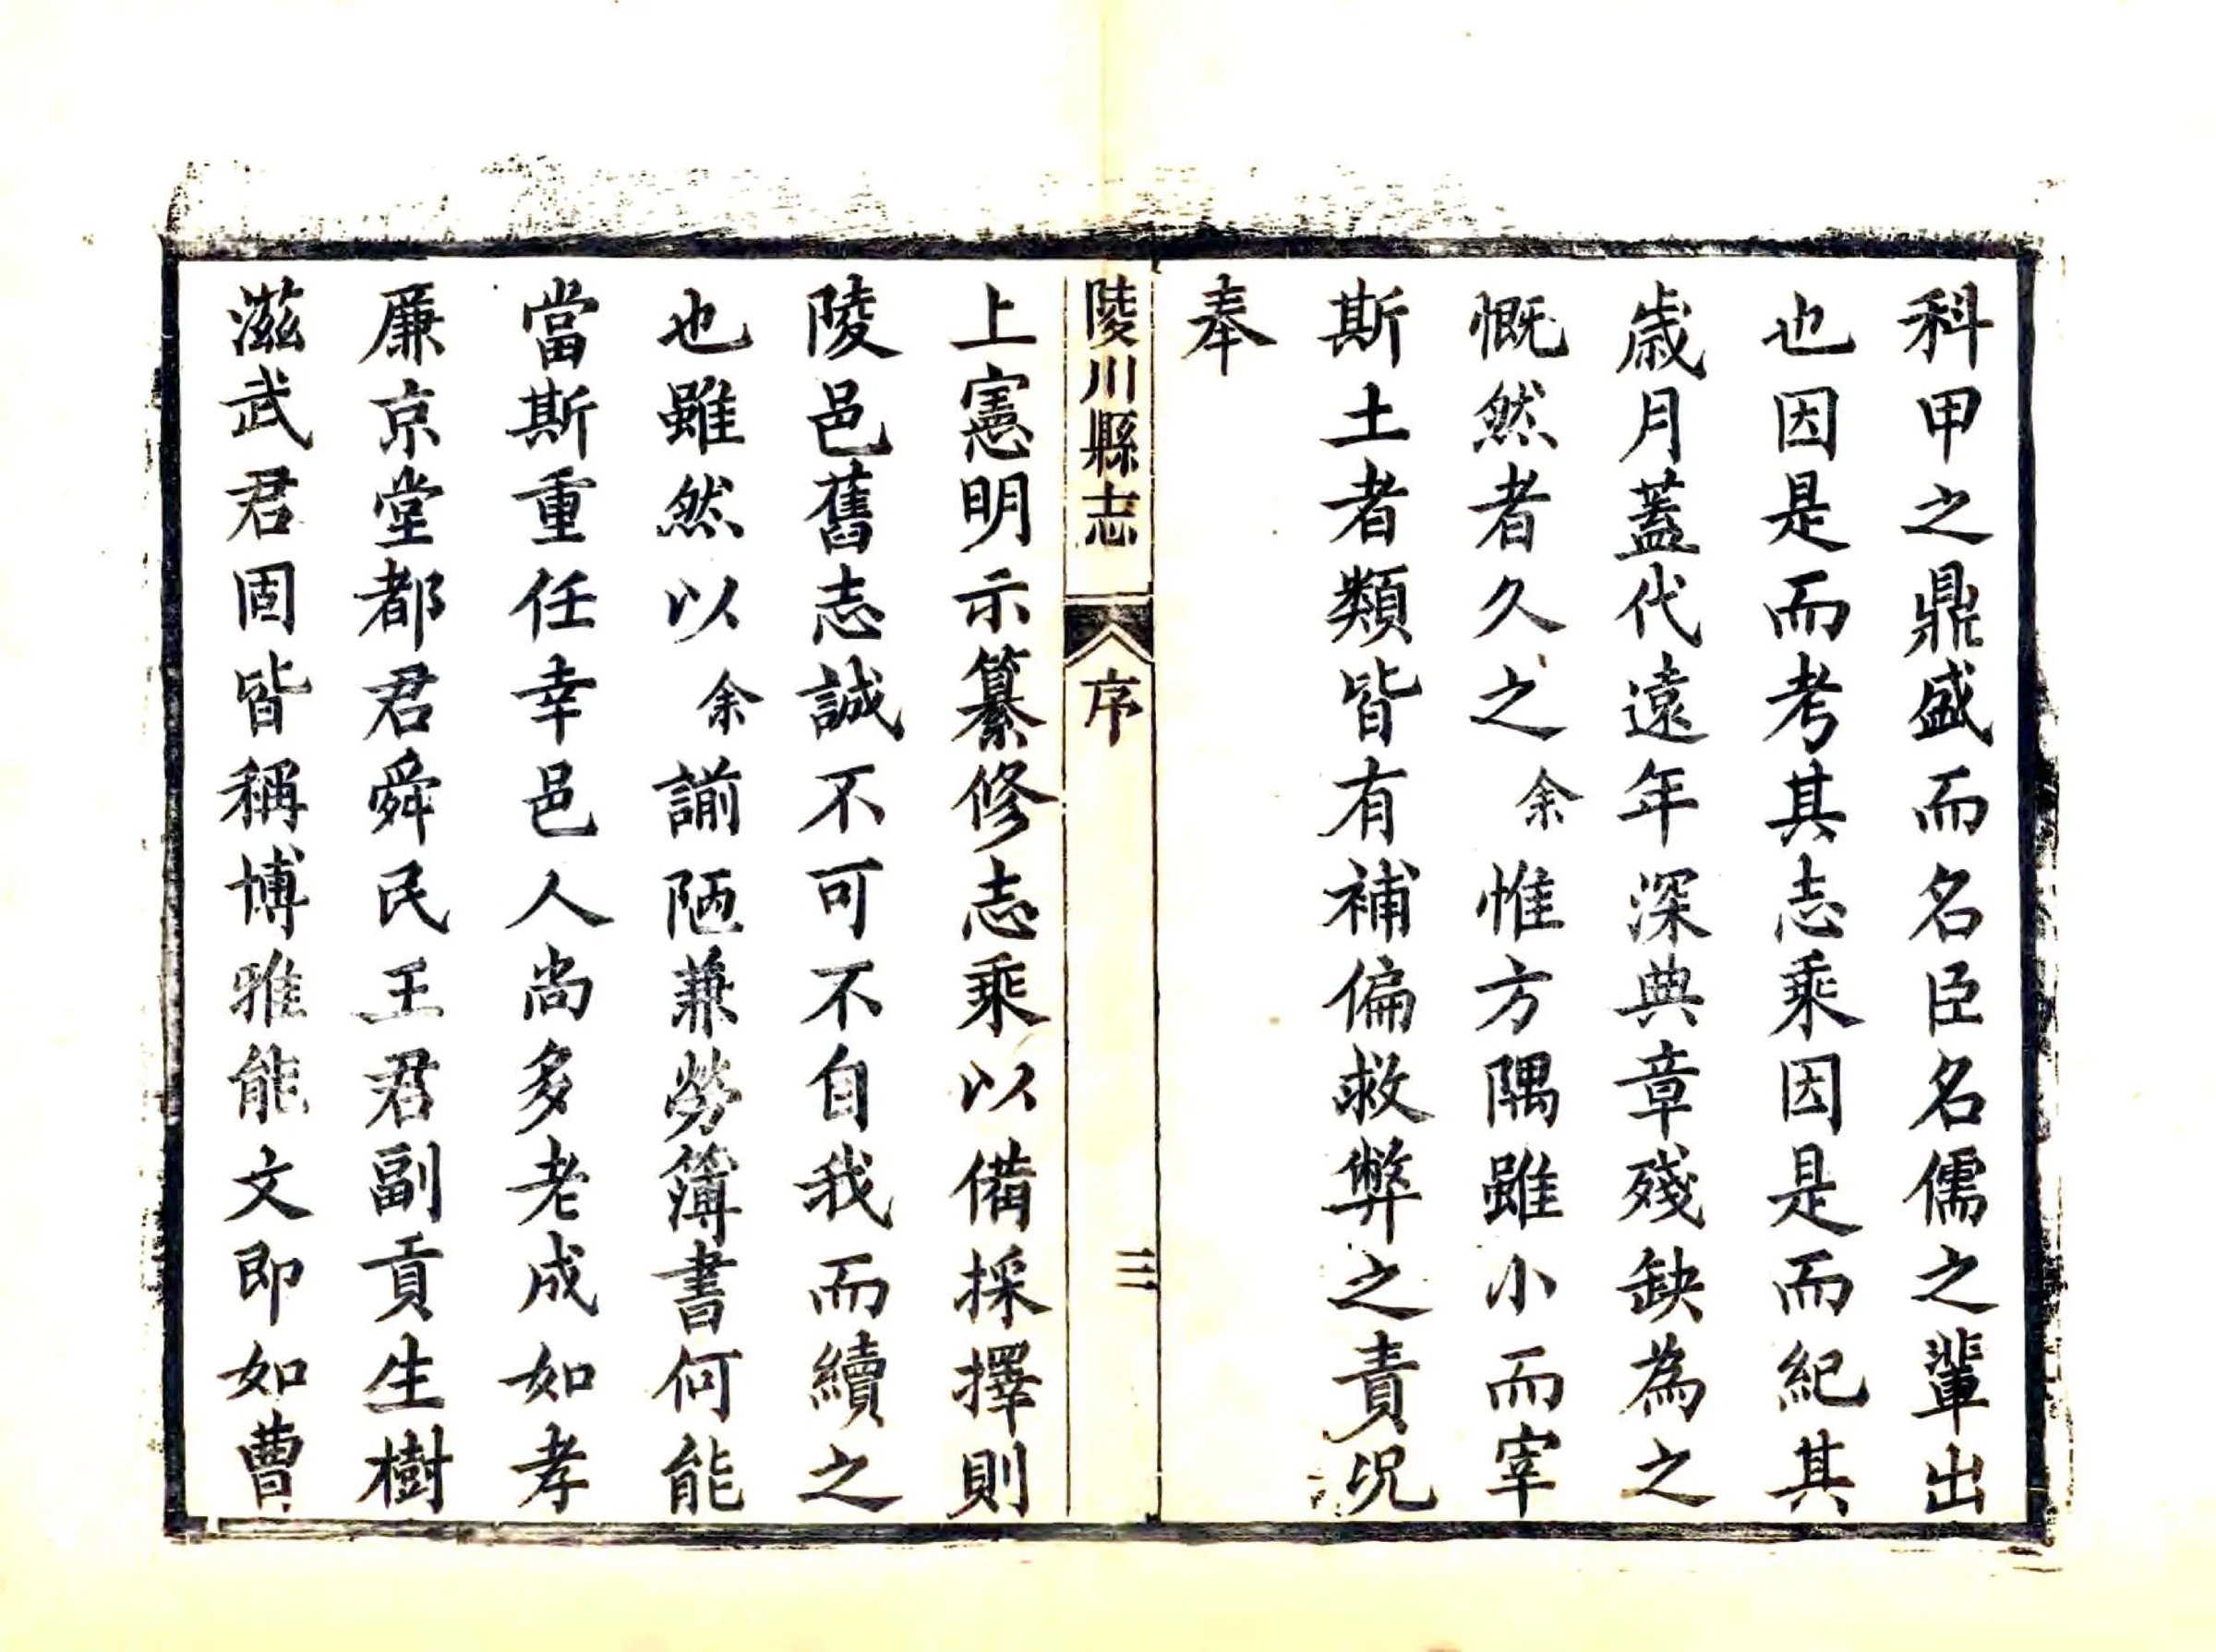 科甲之鼎盛而名臣名儒之輩出
也因是而考其志乘因是而紀其
歲月蓋代遠年深典章殘缺為之
慨然者久之余惟方隅雖小而宰
斯土者類皆有補偏救弊之責況
奉
陵川縣志 序 三
上憲明示纂修志乘以備採擇則
陵邑舊志誠不可不自我而續之
也雖然以余謭陋兼勞簿書何能
當斯重任幸邑人尚多老成如孝
廉京堂都君舜民王君副貢生樹
滋武君固皆稱博雅能文即如曹